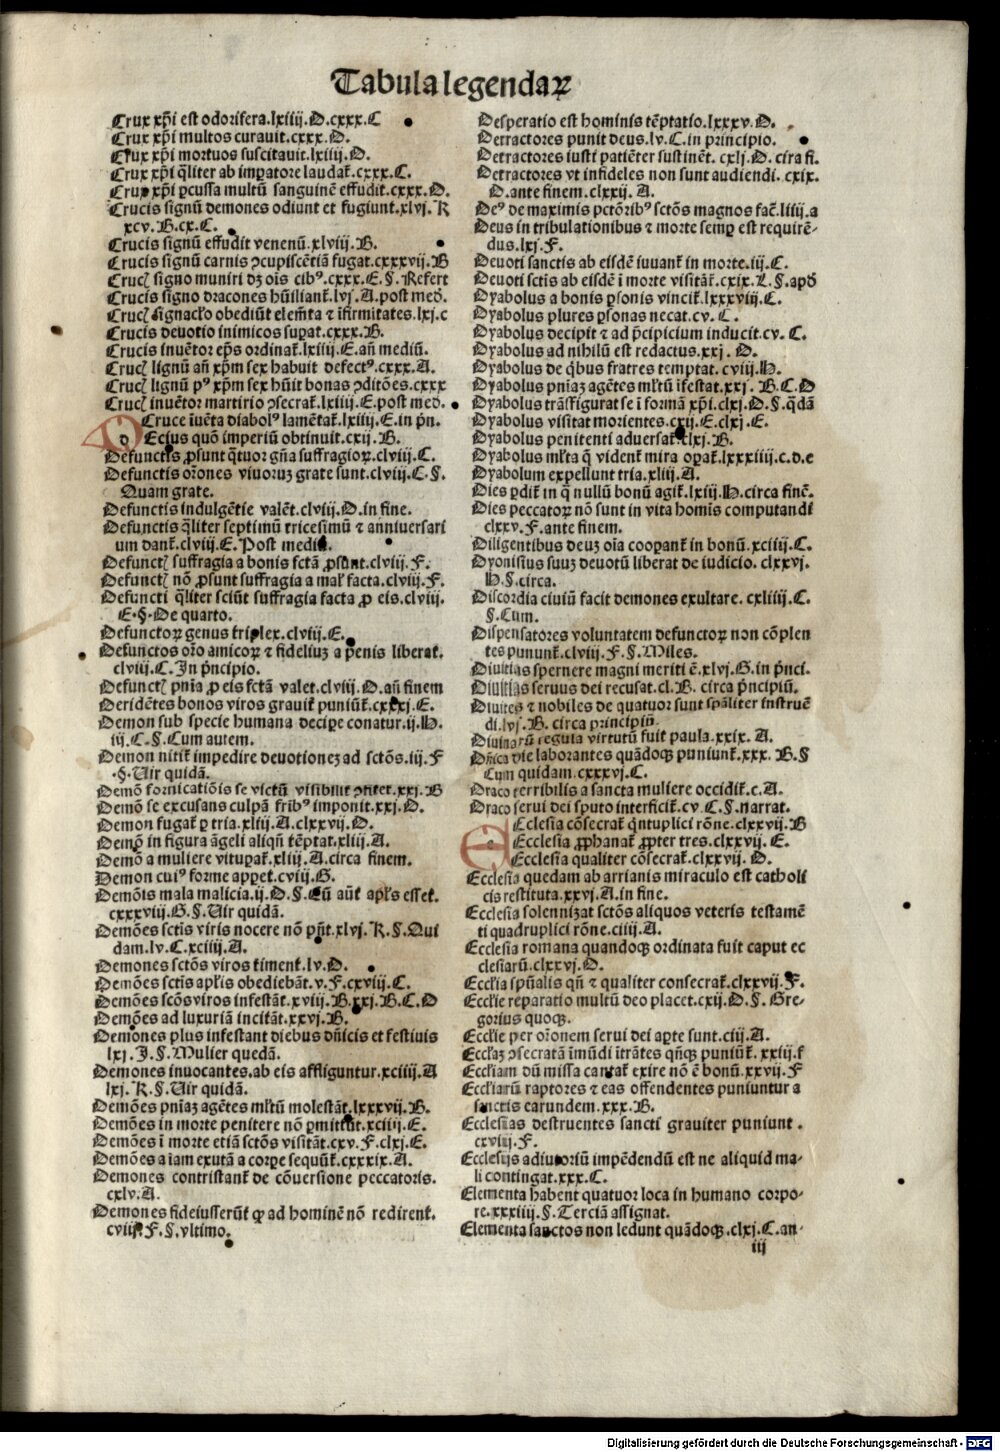 Tabula legendaꝝ
Crux xp̄i est odorifera.lxiiij.D.cxxx.C
Crux xp̄i multos curauit.cxxx.D.
Crux xp̄i mortuos suscitauit.lxiiij.D.
Crux xp̄i q̄liter ab imꝑatore laudat̄.cxxx.C.
Crux xp̄i ꝑcussa multū sanguinē effudit.cxxx.D.
Crucis signū demones odiunt et fugiunt.xlvj.K
xcv.B.cx.C.
Crucis signū effudit venenū.xlviij.B.
Crucis signū carnis ꝯcupiscētiā fugat.cxxxvij.B
Crucꝭ signo muniri dꝫ oīs cibꝰ.cxxx.E.§.Refert
Crucis signo dracones hūiliant̄.lvj.A.post med̄.
Crucꝭ signaclo obediūt elem̄ta ⁊ īfirmitates.lxj.c
Crucis deuotio inimicos suꝑat.cxxx.B.
Crucis inuētor ep̄s ordinat̄.lxiiij.E.an̄ mediū.
Crucꝭ lignū an̄ xp̄m sex habuit defectꝰ.cxxx.A.
Crucꝭ lignū pꝰ xp̄m sex hūit bonas ꝯditōes.cxxx
Crucꝭ inuētor martirio ꝯsecrat̄.lxiiij.E.post med.
Cruce īuēta diabolꝰ lamētat̄.lxiiij.E.in pn̄.
DEcius quō imperiū obtinuit.cxij.B.
Defunctis ꝓsunt q̄tuor gn̄a suffragioꝝ.clviij.C.
Defunctis or̄ones viuoruꝫ grate sunt.clviij.C.§.
Quam grate.
Defunctis indulgētie valēt.clviij.D.in fine.
Defunctis q̄liter septimū tricesimū ⁊ anniuersari
um dant̄.clviij.E.Post mediū.
Defunctꝭ suffragia a bonis fctā ꝓsunt.clviij.F.
Defunctꝭ nō ꝓsunt suffragia a mal̄ facta.clviij.F.
Defuncti q̄liter sciūt suffragia facta ꝓ eis.clviij.
E.§.De quarto.
Defunctoꝝ genus triplex.clviij.E.
Defunctos or̄o amicoꝝ ⁊ fideliuꝫ a penis liberat̄.
clviij.C.In pn̄cipio.
Defunctꝭ pn̄ia ꝓ eis fctā valet.clviij.D.an̄ finem
Deridētes bonos viros grauit̄ puniūt̄.cxxxj.E.
Demon sub specie humana decipe conatur.ij.H.
iij.C.§.Cum autem.
Demon nitit̄ impedire deuotioneꝫ ad sctōs.iij.F
.§.Uir quidā.
Demō fornicatiōis se victū visibilit̄ ꝓfitet̄.xxj.B
Demō se excusans culpā frībꝰ imponit.xxj.D.
Demon fugat̄ ꝑ tria.xliij.A.clxxvij.D.
Demō in figura āgeli aliqn̄ tēptat.xliij.A.
Demō a muliere vituꝑat̄.xliij.A.circa finem.
Demon cuiꝰ forme appet̄.cviij.G.
Demōis mala malicia.ij.D.§.Cū aūt̄ apl̄s esset̄.
cxxxviij.G.§.Uir quidā.
Demōes sctīs viris nocere nō pn̄t.xlvj.K.§.Qui
dam.lv.C.xciiij.A.
Demones sctōs viros timent̄.lv.D.
Demōes sctīs apl̄is obediebāt.v.F.cxviij.C.
Demōes scōs viros infestāt.xviij.B.xxj.B.C.D
Demōes ad luxuriā incitāt.xxvj.B.
Demones plus infestant diebus dn̄icis et festiuis
lxj.J.§.Mulier quedā.
Demones inuocantes.ab eis affliguntur.xciiij.A
lxj.K.§.Uir quidā.
Demōes pn̄iaꝫ agētes ml̄tū molestāt.lxxxvij.B.
Demōes in morte penitere nō ꝑmittūt.xciiij.E.
Demōes ī morte etiā sctōs visitāt.cxv.F.clxj.E.
Demōes aīam exutā a corꝑe sequūt̄.cxxxix.A.
Demones contristant̄ de cōuersione peccatoris.
cxlv.A.
Demones fideiusserūt ꝙ ad hominē nō redirent̄.
cviij.F.§.vltimo.
Desperatio est hominis tēptatio.lxxxv.D.
Detractores punit deus.lv.C.in principio.
Detractores iusti patiēter sustinēt.cxlj.D.cira fi.
Detractores vt infideles non sunt audiendi.cxix.
D.ante finem.clxxij.A.
Deꝰ de maximis pctōribꝰ sctōs magnos fac̄.liiij.a
Deus in tribulationibus ⁊ morte semꝑ est requirē-
dus.lxj.F.
Deuoti sanctis ab eisdē iuuant̄ in morte.iij.C.
Deuoti sctīs ab eisdē ī morte visitāt̄.cxix.L.§.apd̄
Dyabolus a bonis ꝑsonis vincit̄.lxxxviij.C.
Dyabolus plures ꝑsonas necat.cv.C.
Dyabolus decipit ⁊ ad p̄cipicium inducit.cv.C.
Dyabolus ad nihilū est redactus.xxj.D.
Dyabolus de q̄bus fratres temptat.cviij.H.
Dyabolus pn̄iaꝫ agētes ml̄tū īfestat.xxj.B.C.D
Dyabolus trāsfigurat se ī formā xp̄i.clxj.D.§.q̄dā
Dyabolus visitat morientes.cxij.E.clxj.E.
Dyabolus penitenti aduersat̄.clxj.B.
Dyabolus ml̄ta q̄ vident̄ mira oꝑat̄.lxxxiiij.c.d.e
Dyabolum expellunt tria.xliij.A.
Dies ꝑdit̄ in q̄ nullū bonū agit̄.lxiij.H.circa finē.
Dies peccatoꝝ nō sunt in vita homīs computandi
clxxv.F.ante finem.
Diligentibus deuꝫ oīa cooꝑant̄ in bonū.xciiij.C.
Dyonisius suuꝫ deuotū liberat de iudicio.clxxvj.
H.§.circa.
Discordia ciuiū facit demones exultare.cxliiij.C.
§.Cum.
Dispensatores voluntatem defunctoꝝ non cōplen
tes pununt̄.clviij.F.§.Miles.
Diuitias spernere magni meriti ē.xlvj.G.in pn̄ci.
Diuitias seruus dei recusat.cl.B.circa pn̄cipiū.
Diuites ⁊ nobiles de quatuor sunt spāliter instruē
di.lvj.B.circa principiū.
Diuinarū regula virtutū fuit paula.xxix.A.
Dn̄ica die laborantes quādoqꝫ puniunt̄.xxx.B.§
Cum quidam.cxxxvj.C.
Draco terribilis a sancta muliere occidit̄.c.A.
Draco serui dei sputo interficit̄.cv.C.§.narrat.
Ecclesia cōsecrat̄ q̄ntuplici rōne.clxxvij.B
Ecclesia ꝓphanat̄ ꝓpter tres.clxxvij.E.
Ecclesia qualiter cōsecrat̄.clxxvij.D.
Ecclesia quedam ab arrianis miraculo est catholi
cis restituta.xxvj.A.in fine.
Ecclesia solennizat sctōs aliquos veteris testamē
ti quadruplici rōne.ciij.A.
Ecclesia romana quandoqꝫ ordinata fuit caput ec
clesiarū.clxxvj.D.
Eccl̄ia spūalis qn̄ ⁊ qualiter consecrat̄.clxxvij.F.
Eccl̄ie reparatio multū deo placet.cxij.D.§.Gre-
gorius quoqꝫ.
Eccl̄ie per or̄onem serui dei aꝑte sunt.ciij.A.
Eccl̄iaꝫ ꝯsecratā īmūdi ītrātes qn̄qꝫ puniūt̄.xxiij.f
Eccl̄iam dū missa cantat̄ exire nō ē bonū.xxvij.F
Eccl̄iarū raptores ⁊ eas offendentes puniuntur a
sanctis earundem.xxx.B.
Ecclesias destruentes sancti grauiter puniunt.
cxviij.F.
Ecclesijs adiutoriū impēdendū est ne aliquid ma-
li contingat.xxx.C.
Elementa habent quatuor loca in humano corpo-
re.xxxiiij.§.Terciā assignat.
Elementa sanctos non ledunt quādoqꝫ.clxj.C.an-
iij
Digitalisierung gefördert durch die Deutsche Forschungsgemeinschaft - DFG